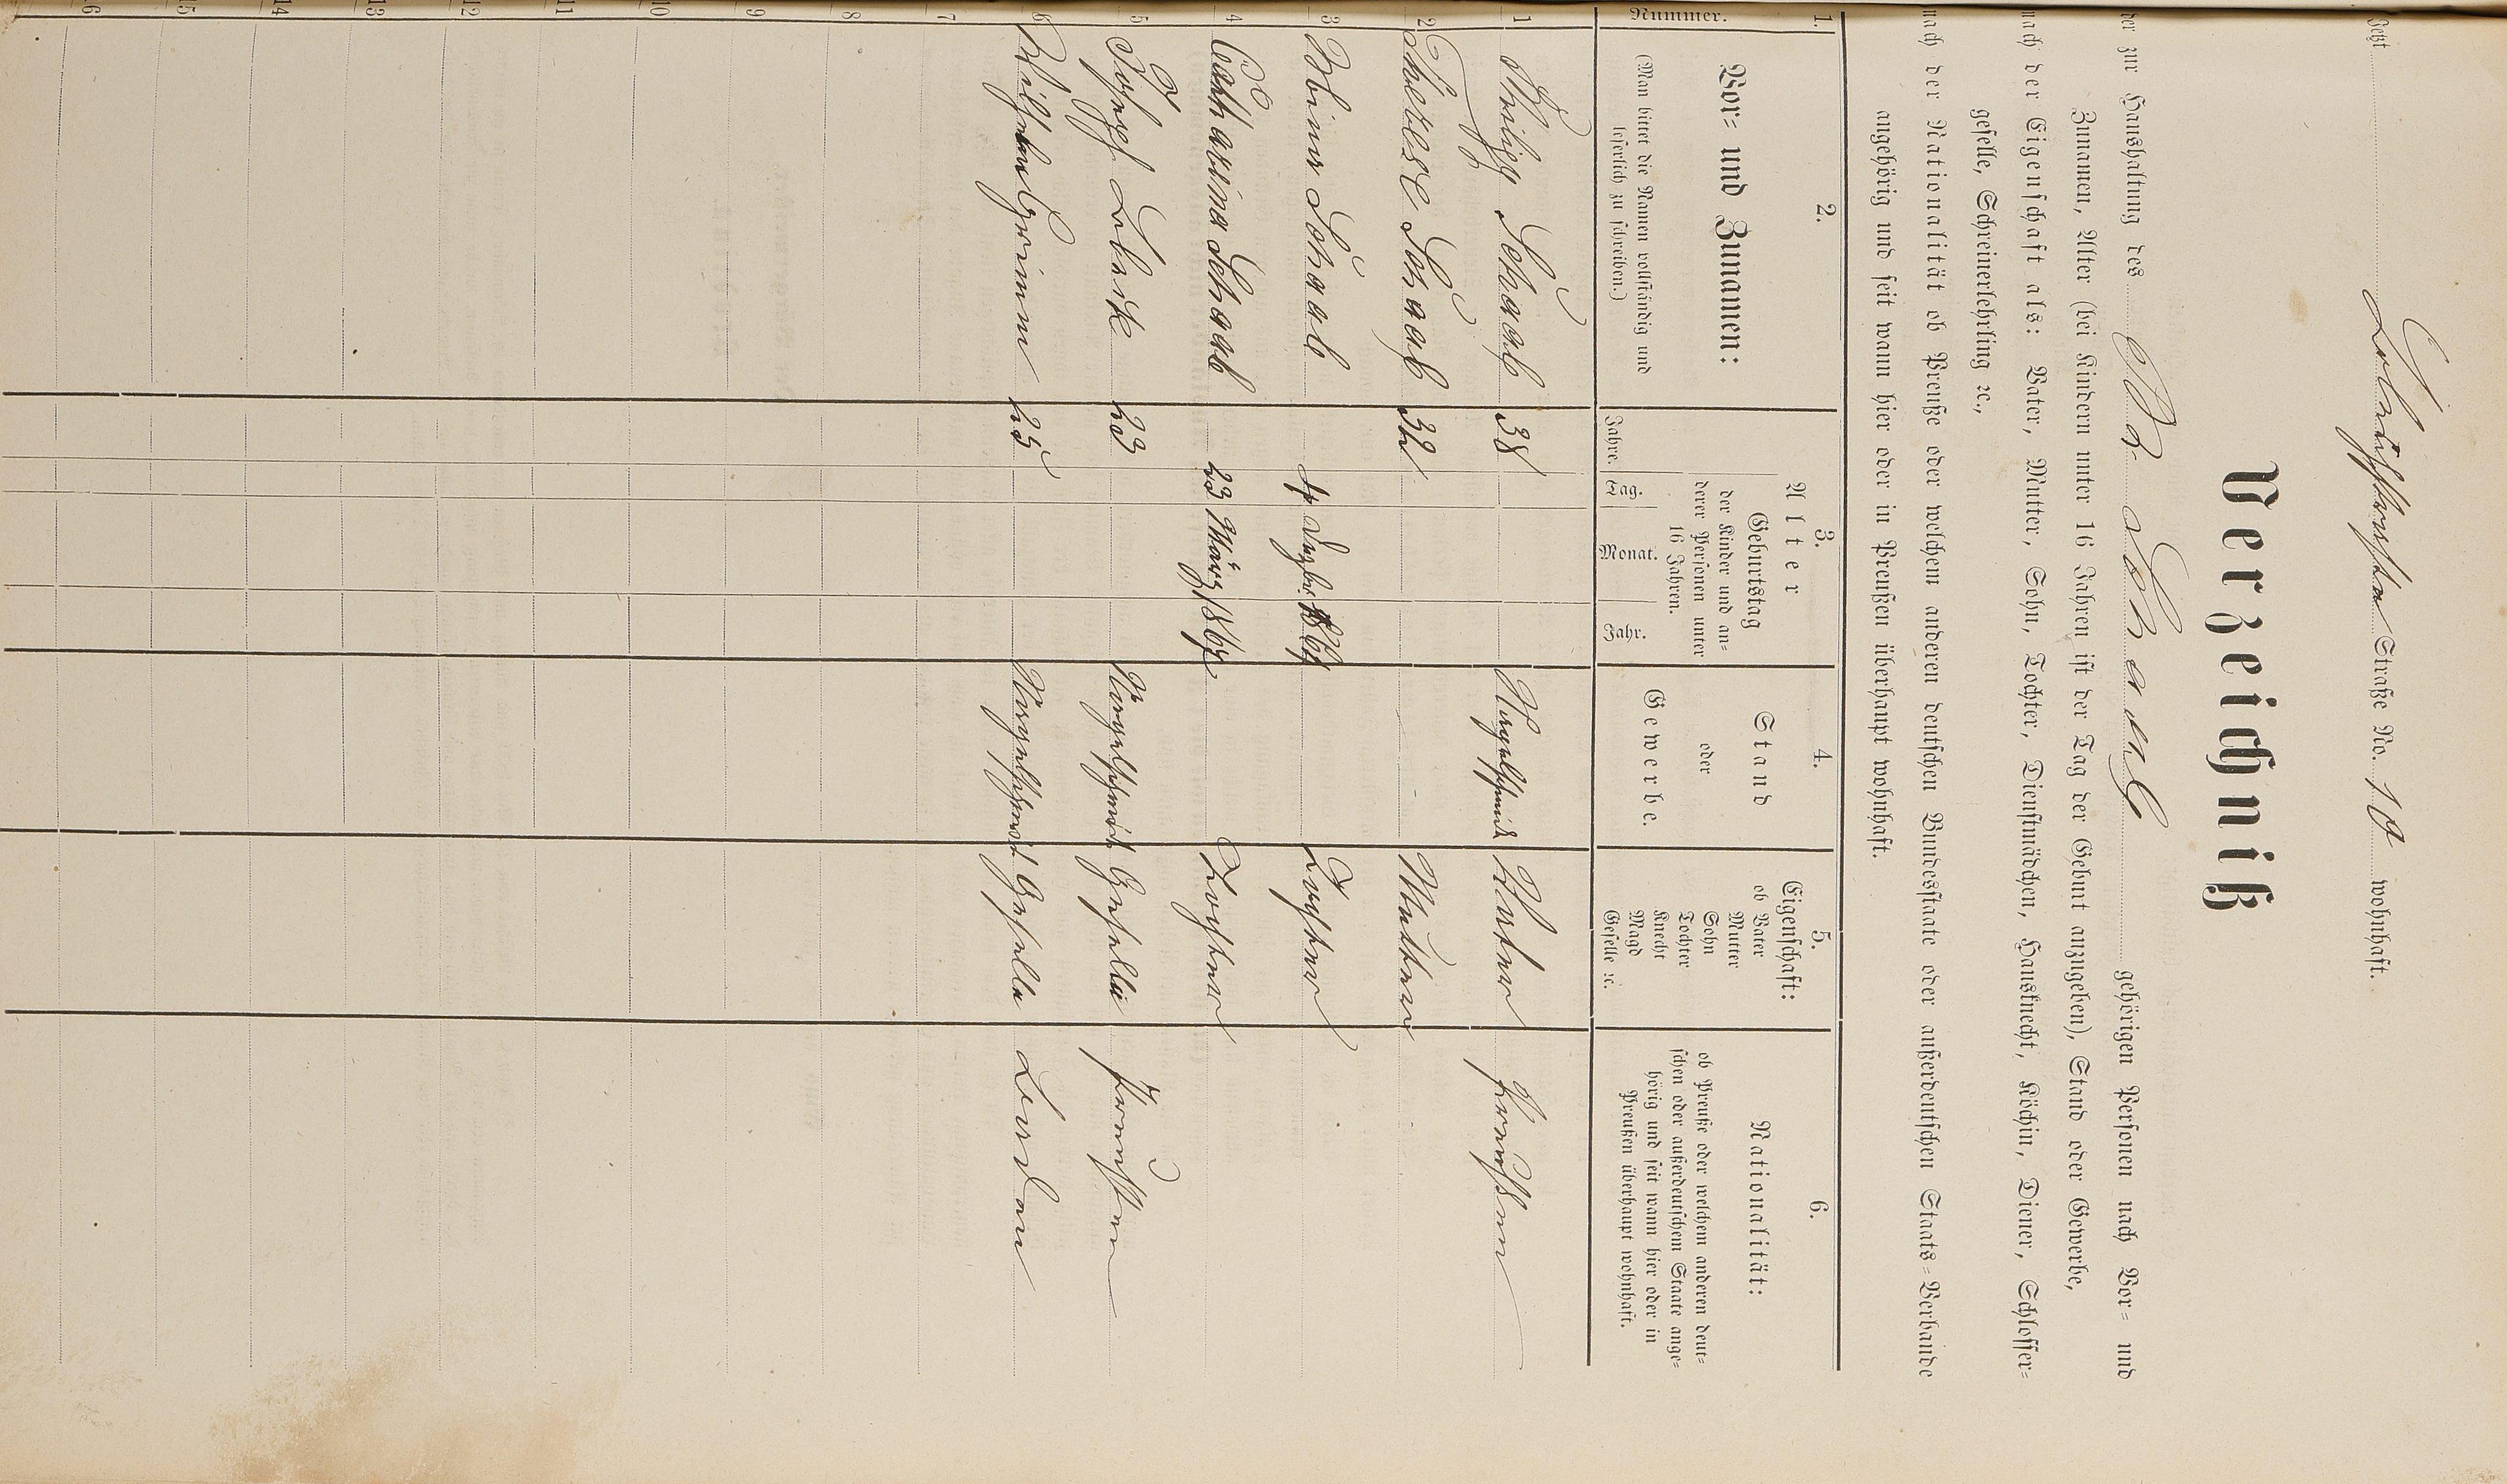 Jetzt Löhrchaussee Straße No. 10 wohnhaft.
Verzeichniß
der zur Haushaltung des Ph. Schaaf gehörigen Personen nach Vor- und
Zunamen, Alter (bei Kindern unter 16 Jahren ist der Tag der Geburt anzugeben), Stand oder Gewerbe,
nach der Eigenschaft als: Vater, Mutter, Sohn, Tochter, Dienstmädchen, Hausknecht, Köchin, Diener, Schlosser-
geselle, Schreinerlehrling ꝛc.,
nach der Nationalität ob Preuße oder welchem anderen deutschen Bundesstaate oder außerdeutschen Staats-Verbande
angehörig und seit wann hier oder in Preußen überhaupt wohnhaft.
1. 2. 3. 4. 5. 6.
Nummer.
Vor- und Zunamen:
(Man bittet die Namen vollständig und
leserlich zu schreiben.)
Alter
Geburtstag
der Kinder und an-
derer Personen unter
16 Jahren.
Jahre. Tag. Monat. Jahr.
Stand
oder
Gewerbe.
Eigenschaft:
ob Vater
Mutter
Sohn
Tochter
Knecht
Magd
Geselle ꝛc.
Nationalität:
ob Preuße oder welchem anderen deut-
schen oder außerdeutschem Staate ange-
hörig und seit wann hier oder in
Preußen überhaupt wohnhaft.
1 Philipp Schaaf 38 Nagelschmid Vater Preußen
2 Therese Schaaf 32 Mutter
3 Schaaf 4 Dezbr. 1864 Tochter
4 Catharina Schaaf 23 März 1867 Tochter
5 Joseph 23 Nagelschmid Geselle Preußen
6 Wilhelm Grimm 25 Nagelschmid Geselle
7
8
9
10
11
12
13
14
15
16